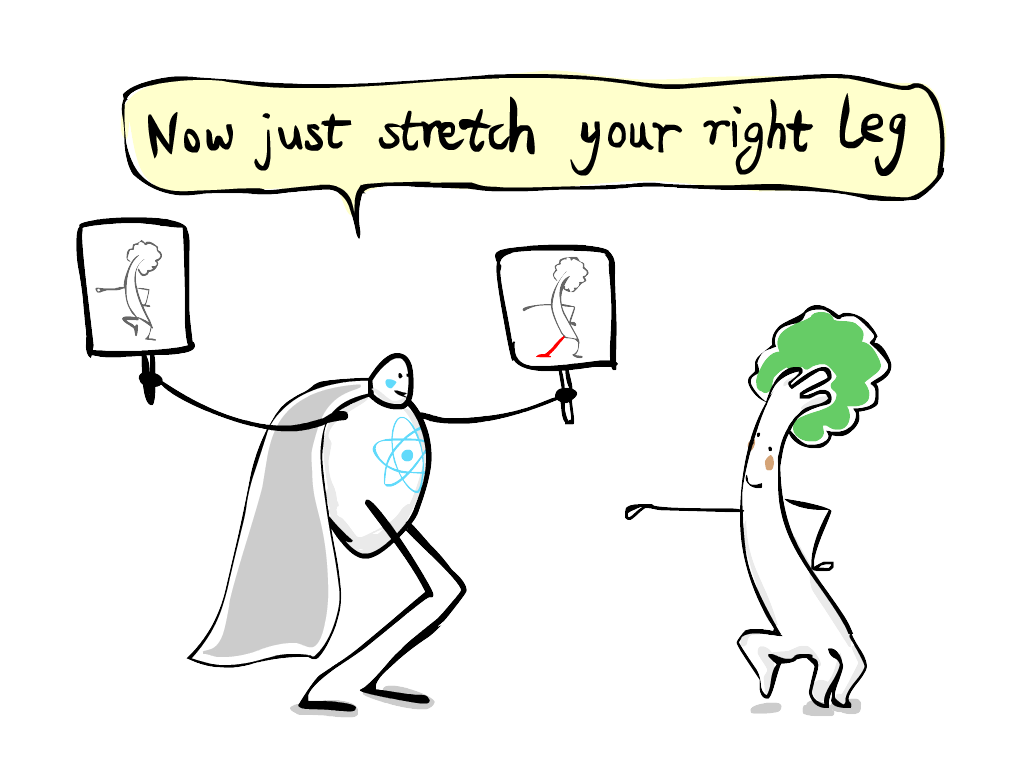 Now just stretch your right Leg